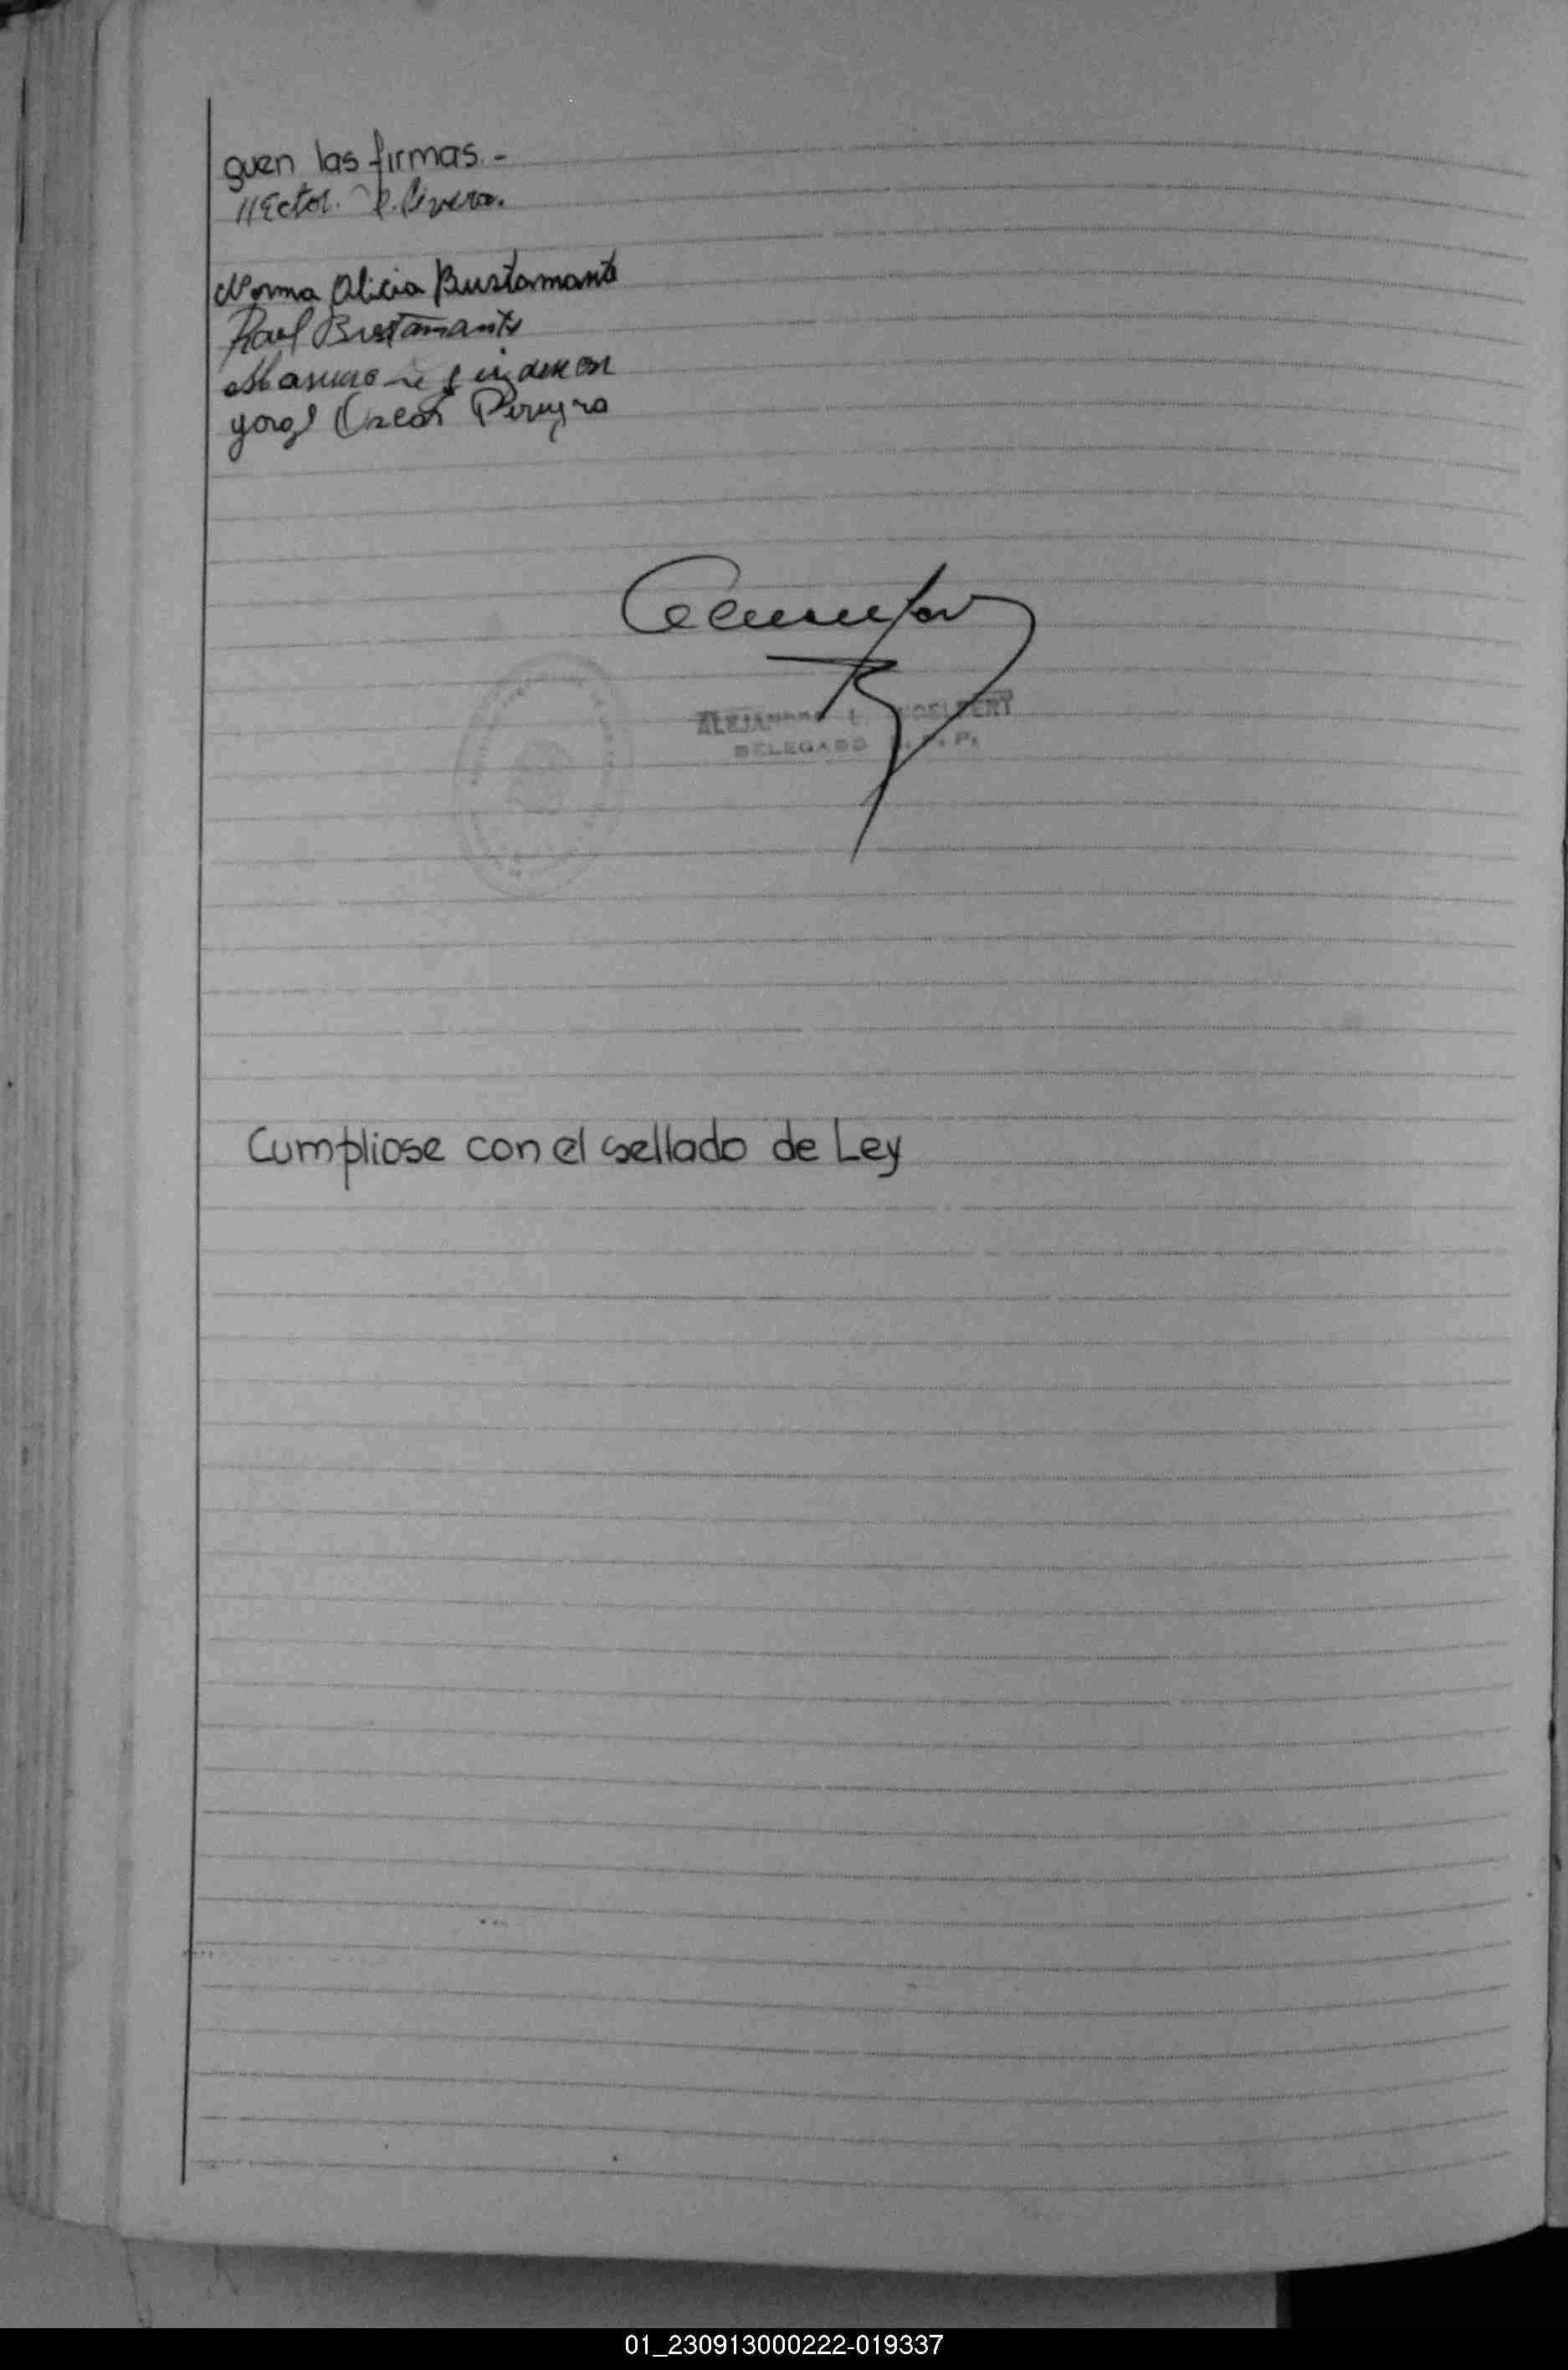 guen las firmas.-
Hector. R. Rivera.
Norma Alicia Bustamante
Raul Bustamante
Oscar Pereyra
ALEJANDRO L.
DELEGADO
Cumpliose con el sellado de Ley
01_230913000222-019337